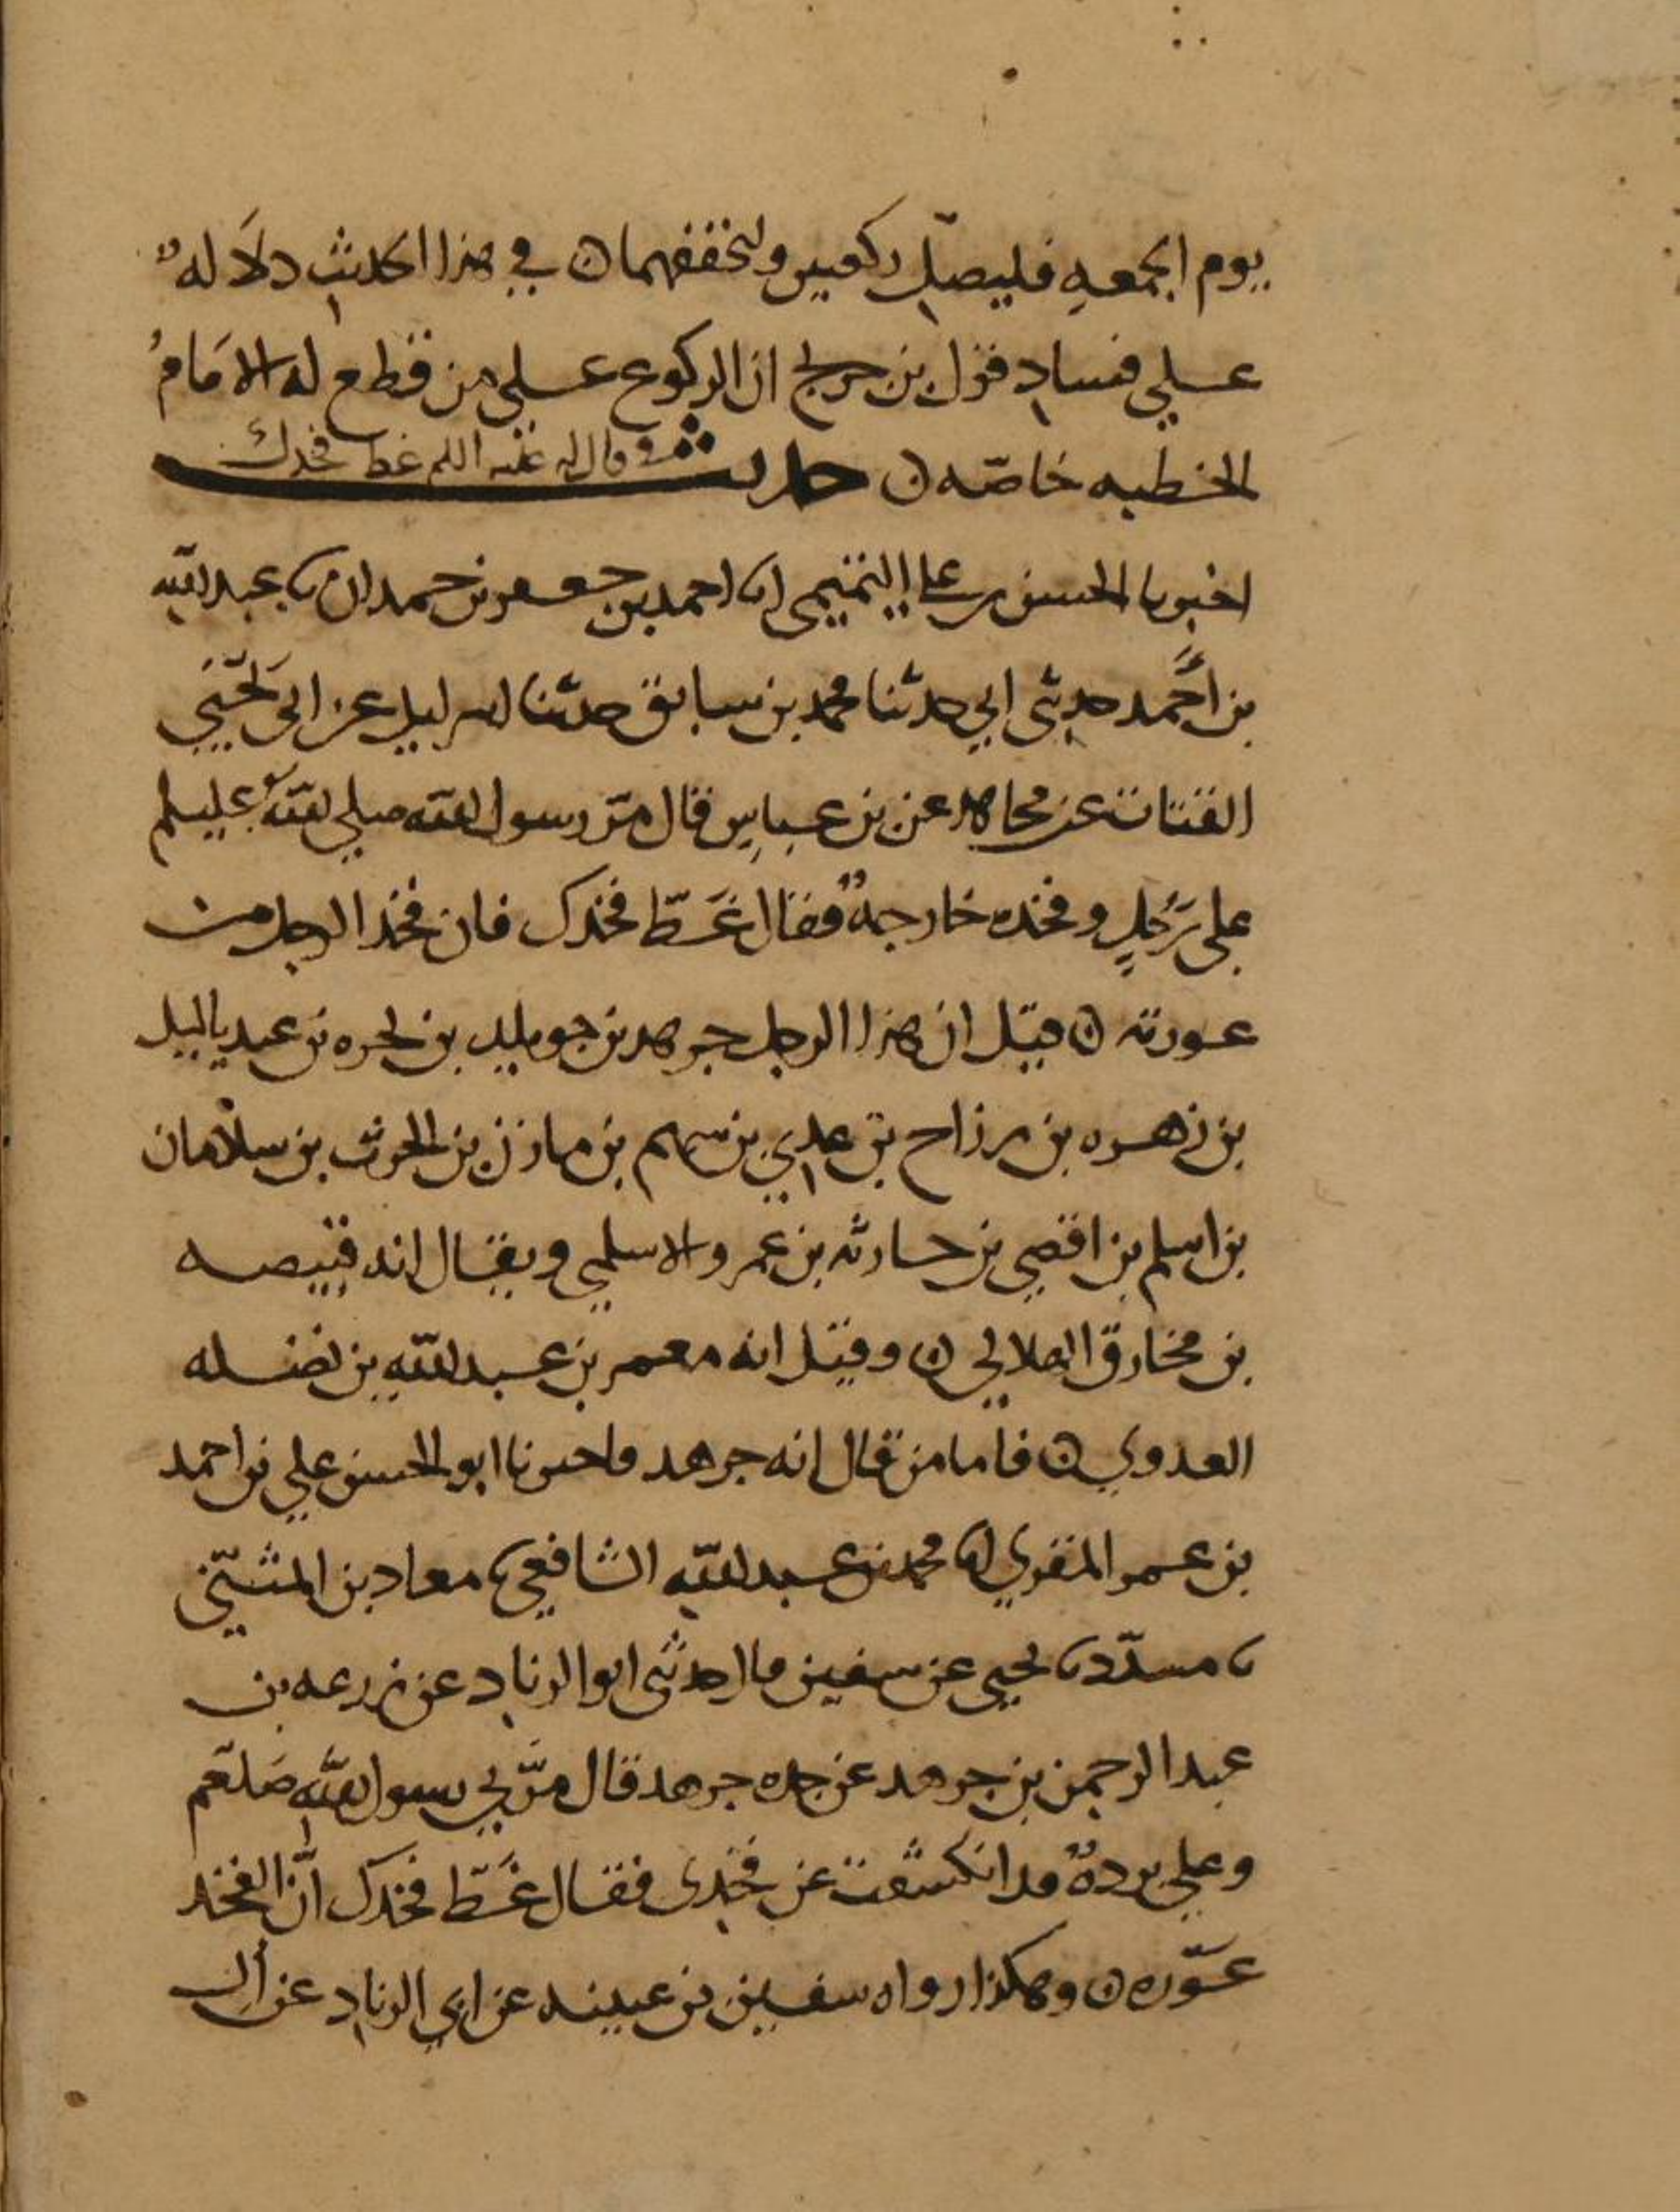 يوم الجمعه فليصلّ ركعتين وليخففهما ن في هذا الحديث دلاله
علي فساد قول بن جريج ان الركوع علي من قطع له الامام
الخطبه خاصّه ن حديث
اخبرنا الحسن بن علي التميمي انا احمد بن جعفر بن حمدان نا عبد الله
بن أحمد حدثني ابي حدثنا محمد بن سابق حدثنا اسرائيل عن ابي يحيى
القتات عن مجاهد عن بن عباس قال مرّ رسول الله صلى الله عليه وسلم
على رَجُلٍ وفخذه خارجةٌ فقال غَطّ فخذك فان فخذ الرجل من
عورته ن قيل ان هذا الرجل جرهد بن خويلد بن بجره بن عبد ياليل
بن زهره بن رزاح بن عدي بن سهم بن مازن بن الحرث بن سلامان
بن اسلم بن افصي بن حارثه بن عمرو الاسلمي ويقال انه قبيصه
بن مخارق الهلالي ن وقيل انه معمر بن عبد الله بن نضله
العدوي ن فاما من قال انه جرهد فاخبرنا ابو الحسن علي بن احمد
بن عمر المقري انا محمد بن عبد الله الشافعي نا معاد بن المثنّى
نا مسدّد نا يحيى عن سفين قال حدثني ابو الزناد عن زرعه بن
عبد الرحمن بن جرهد عن جده جرهد قال مرّ بي رسول الله صَلعم
وعلي بردةٌ قد انكشفت عن فخذى فقال غَطّ فخذك انّ الفخذ
عَوره ن وهكذا رواه سفين بن عيينه عن ابي الزناد عن أل